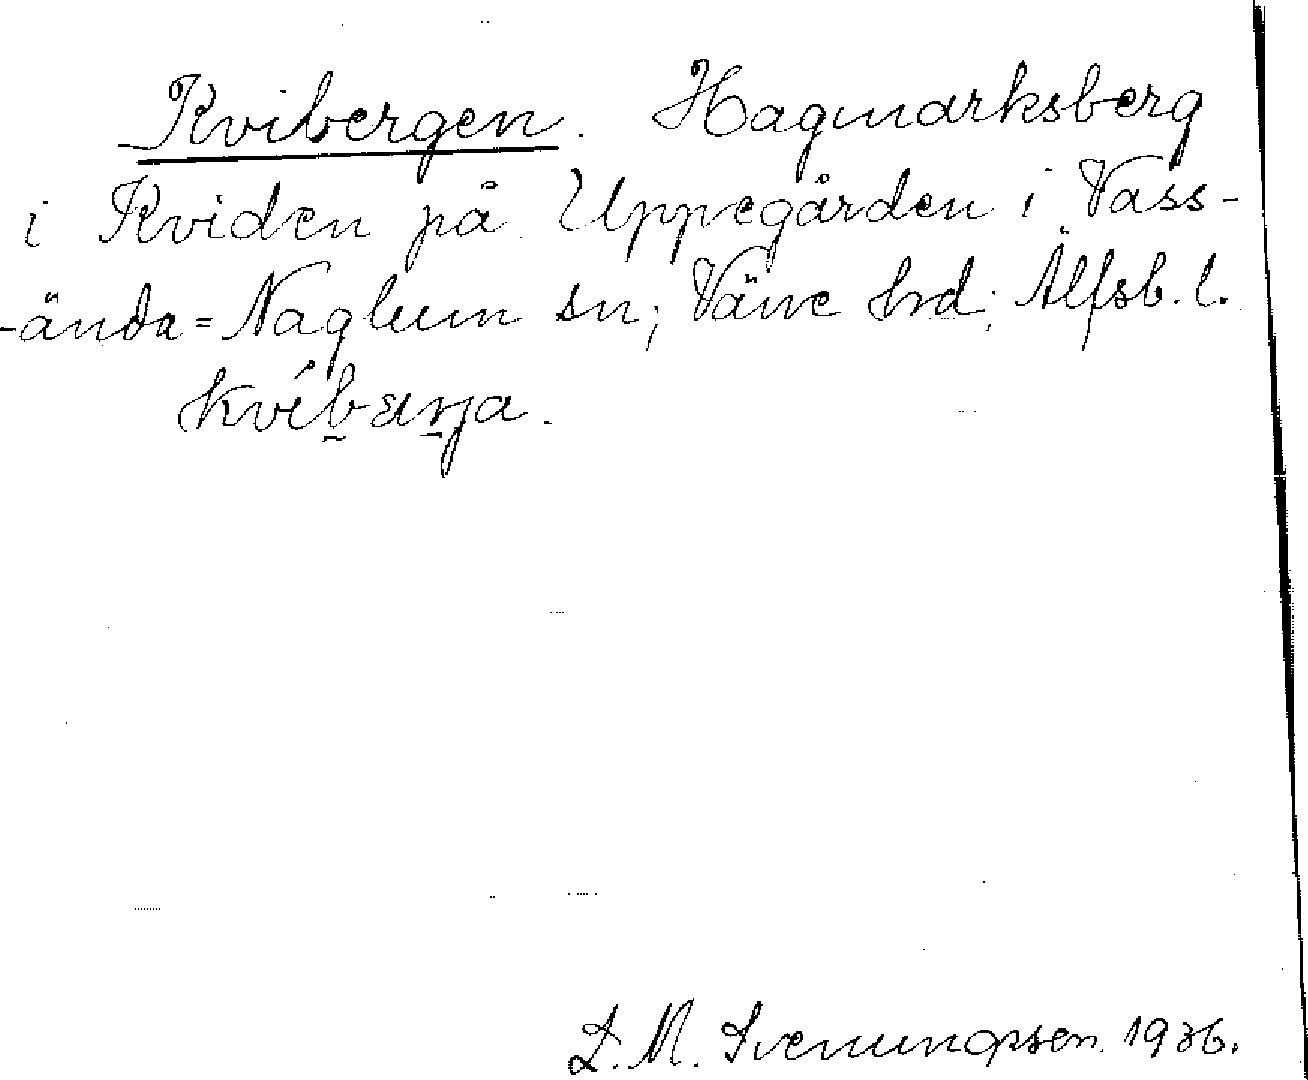 Kvibergen. Hagmarksberg
i Kviden på Uppegården i Vass-
-ända=Naglum sn; Väne hrd; Älfsb. l.
kvíb̰æṟja.
D. M. Svenungsson. 1936.